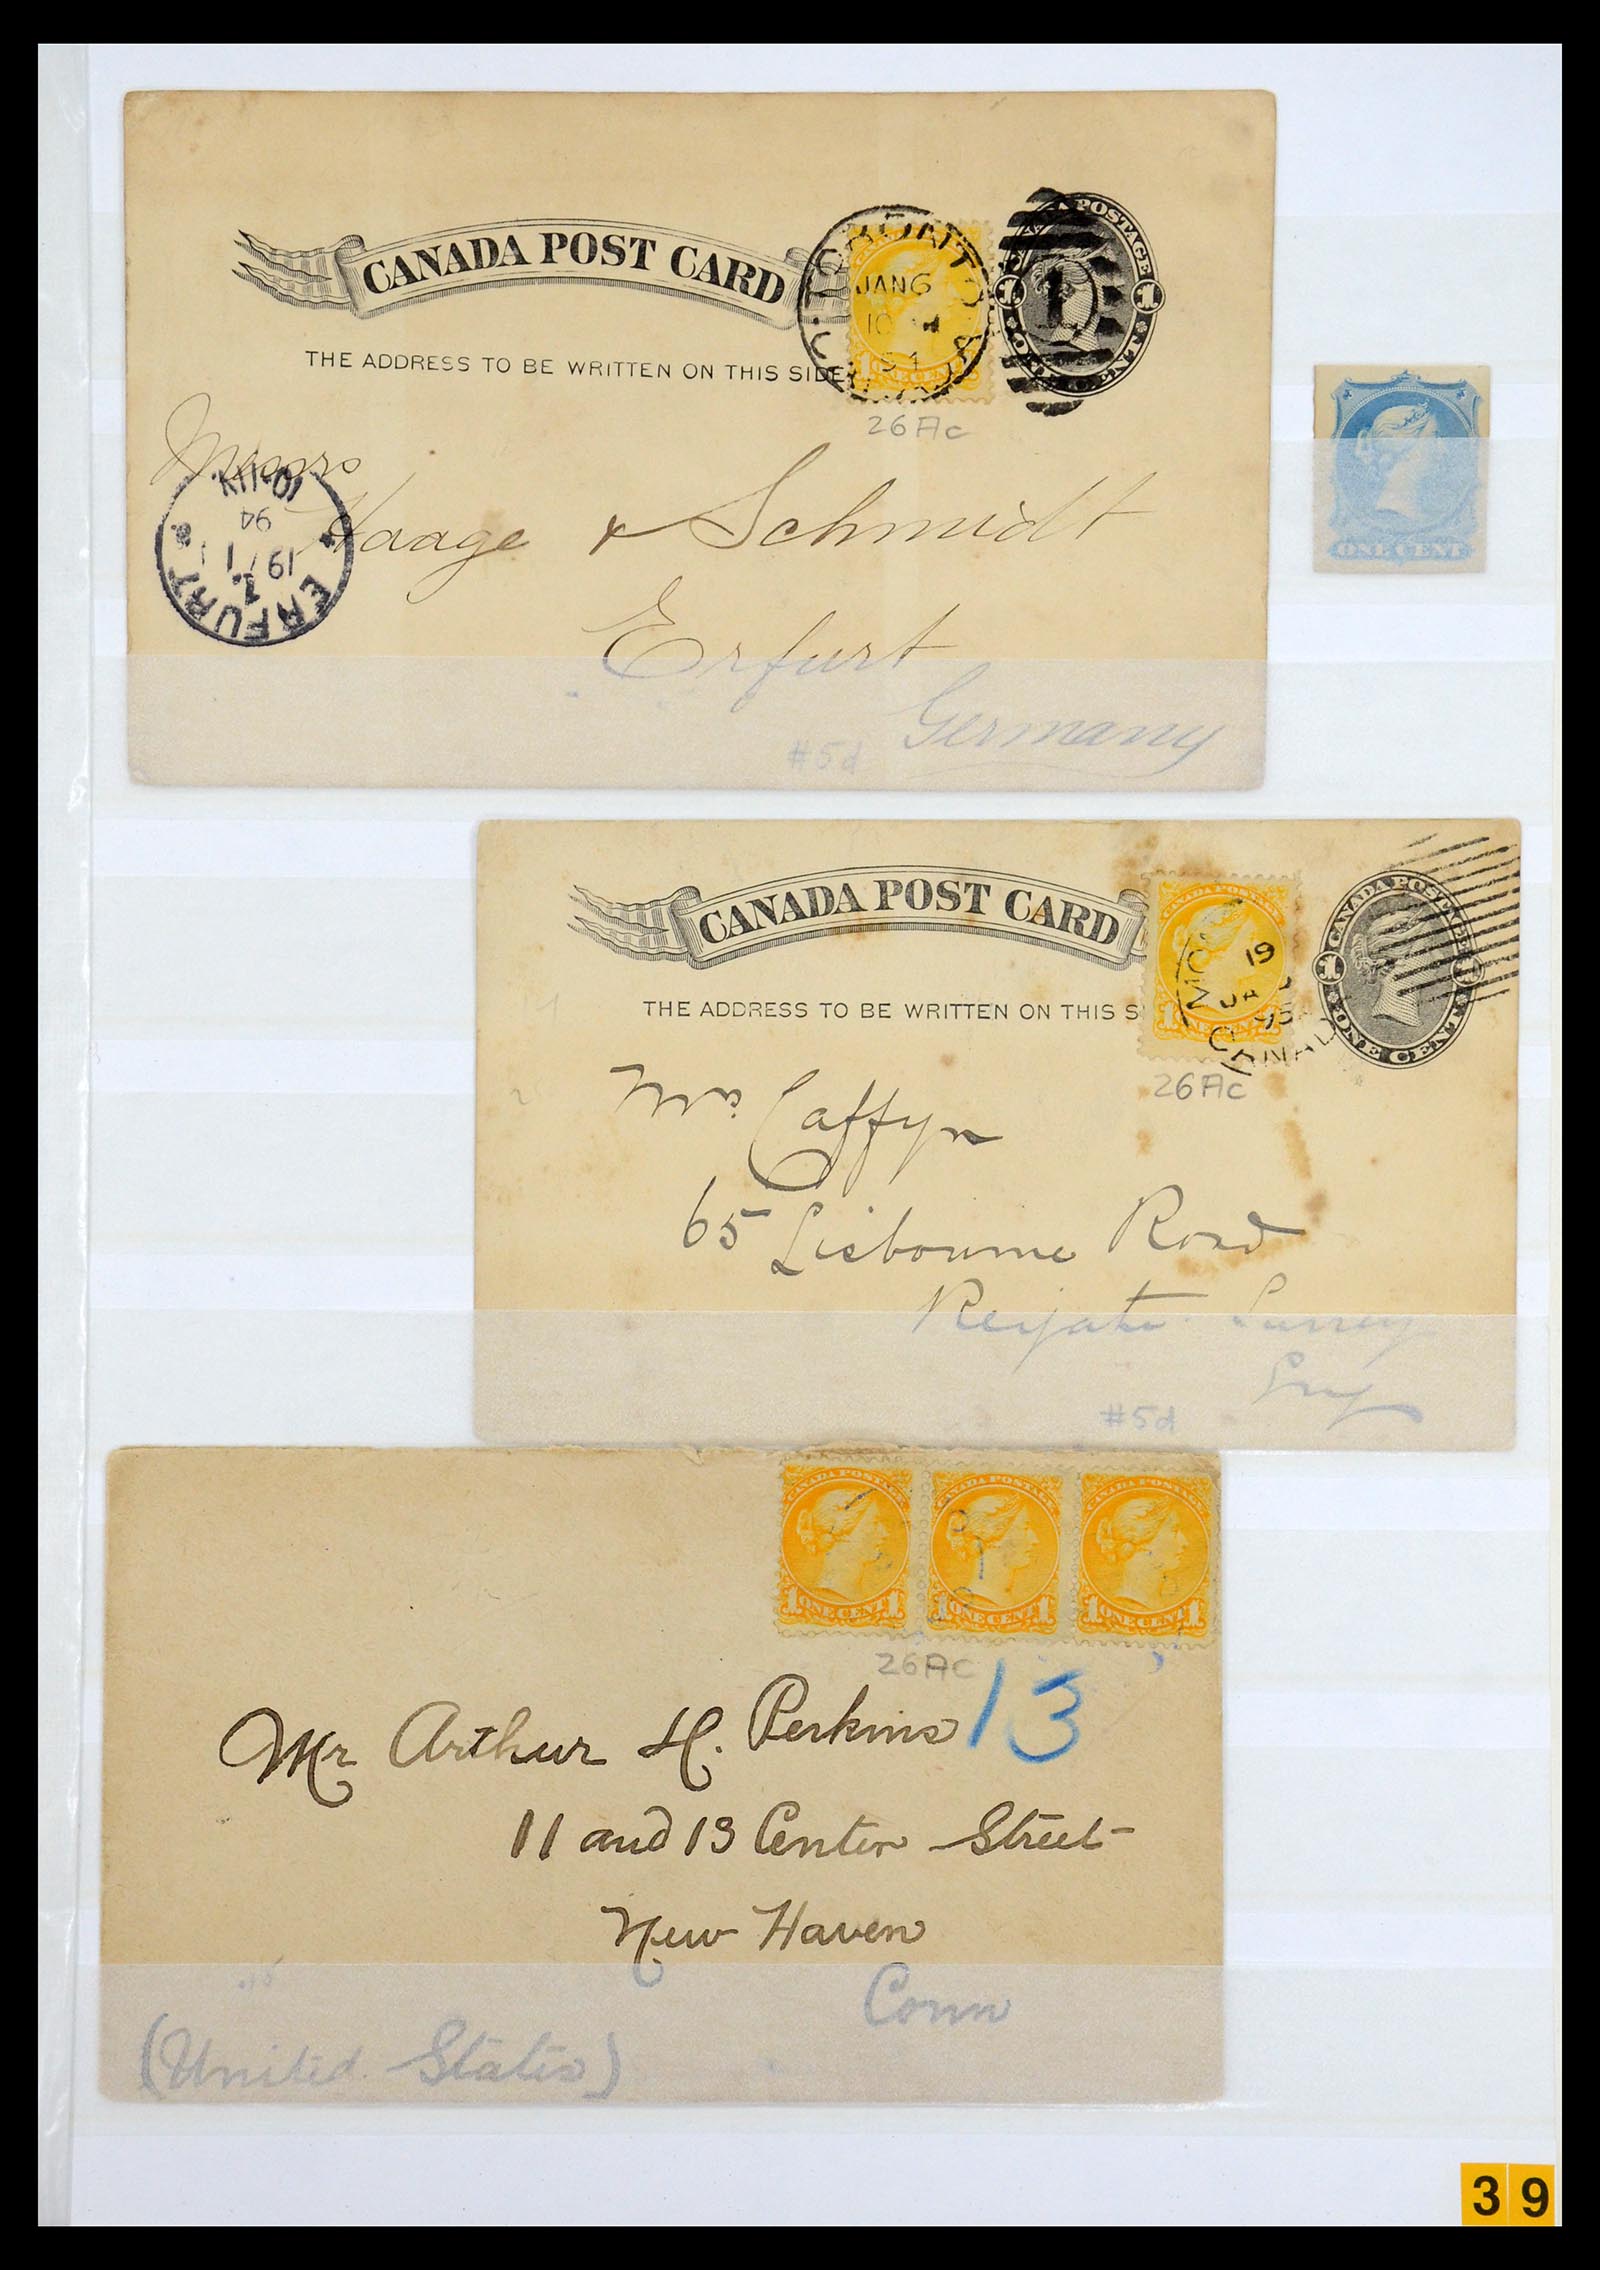 CANADA POST CARD
THE ADDRESS TO BE WRITTEN ON THIS SIDE
TORONTO
JAN 6
POSTAGE
1 1
1
ONE CENT
26Ac
Messrs
Haage & Schmidt
Erfurt
Germany
ERFURT
19/1
94
10-11V.
#5d
ONE CENT
CANADA POST CARD
THE ADDRESS TO BE WRITTEN ON THIS S
CANADA POSTAGE
1 1
ONE CENT
19
JA
95
CANADA
26Ac
Caffyn
65 Lisbourne Road
Reigate Surrey
Eng
#5d
CANADA POSTAGE
1 ONE CENT 1
CANADA POSTAGE
1 ONE CENT 1
CANADA POSTAGE
1 ONE CENT 1
26Ac
13
Mr Arthur H. Perkins
11 and 13 Center Street
New Haven
Conn
(United States)
39